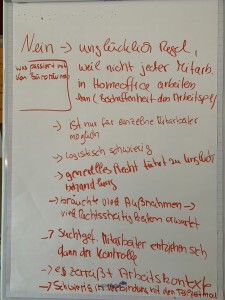 Nein → unglückliche Regel,
weil nicht jeder Mitarb.
was passiert mit
den Büroräumen
in Homeoffice arbeiten
kann (Beschaffenheit des Arbeitspl)
→ ist nur für einzelne Mitarbeiter
möglich
→ logistisch schwierig
→ generelles Recht führt zu Ungleich
behandlung
→ bräuchte viele Ausnahmen →
viele Rechtsstreitigkeiten erwartet
→ Suchtgef. Mitarbeiter entziehen sich
dann der Kontrolle
→ es zerreißt Arbeitskontexte
→ Schwierig in Verbindung mit den